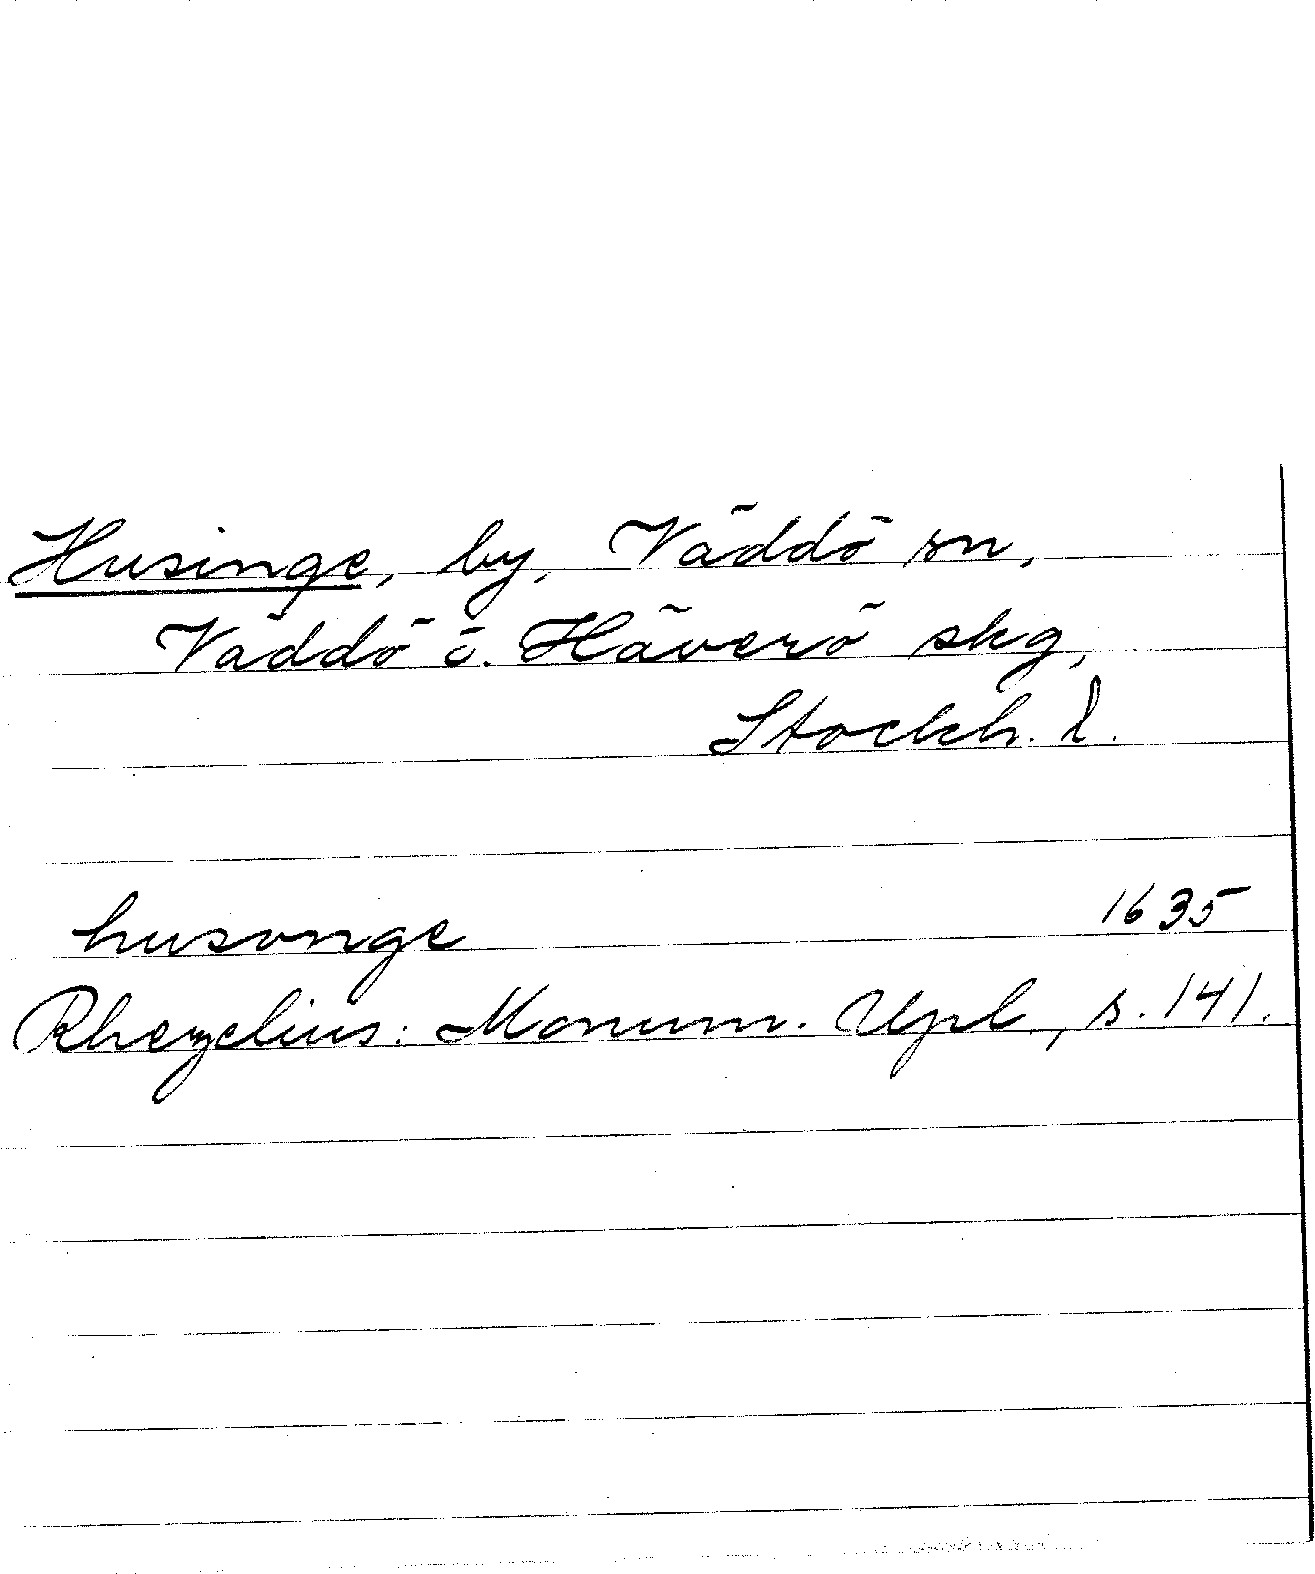 Husinge, by, Väddö sn,
Väddö o. Häverö skg,
Stockh. l.
husonge 1635
Rhezelius: Monum. Upl., s. 141.